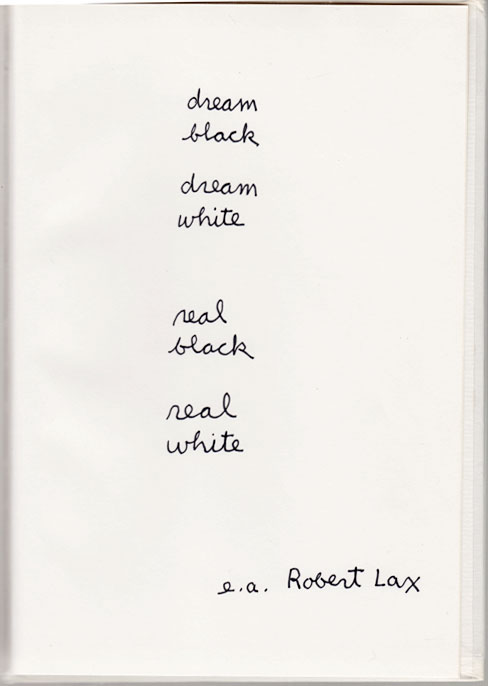 dream
black
dream
white
real
black
real
white
e.a. Robert Lax